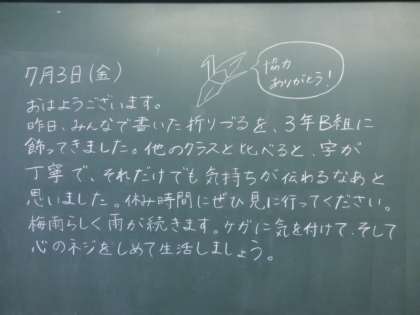 7月3日(金)
協力
ありがとう!
おはようございます。
昨日、みんなで書いた折りづるを、3年B組に
飾ってきました。他のクラスと比べると、字が
丁寧で、それだけでも気持ちが伝わるなあと
思いました。休み時間にぜひ見に行ってください。
梅雨らしく雨が続きます。ケガに気を付けて、そして
心のネジをしめて生活しましょう。